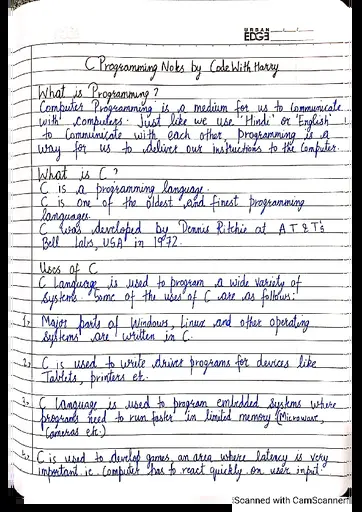 URBAN
EDGE
C Programming Notes by CodeWithHarry
What is Programming?
Computer Programming is a medium for us to communicate
with computers. Just like we use 'Hindi' or 'English'
to Communicate with each other, programming is a
way for us to deliver our instructions to the Computer.
What is C?
C is a programming language.
C is one of the oldest and finest programming
languages.
C was developed by Dennis Ritchie at AT&T's
Bell labs, USA in 1972.
Uses of C
C language is used to program a wide variety of
systems. Some of the uses of C are as follows:
1. Major parts of Windows, Linux and other operating
systems are written in C.
2. C is used to write driver programs for devices like
Tablets, printers etc.
3. C language is used to program embedded systems where
programs need to run faster in limited memory (Microwave,
Cameras etc.)
4. C is used to develop games, an area where latency is very
important i.e. Computer has to react quickly on user input.
Scanned with CamScanner